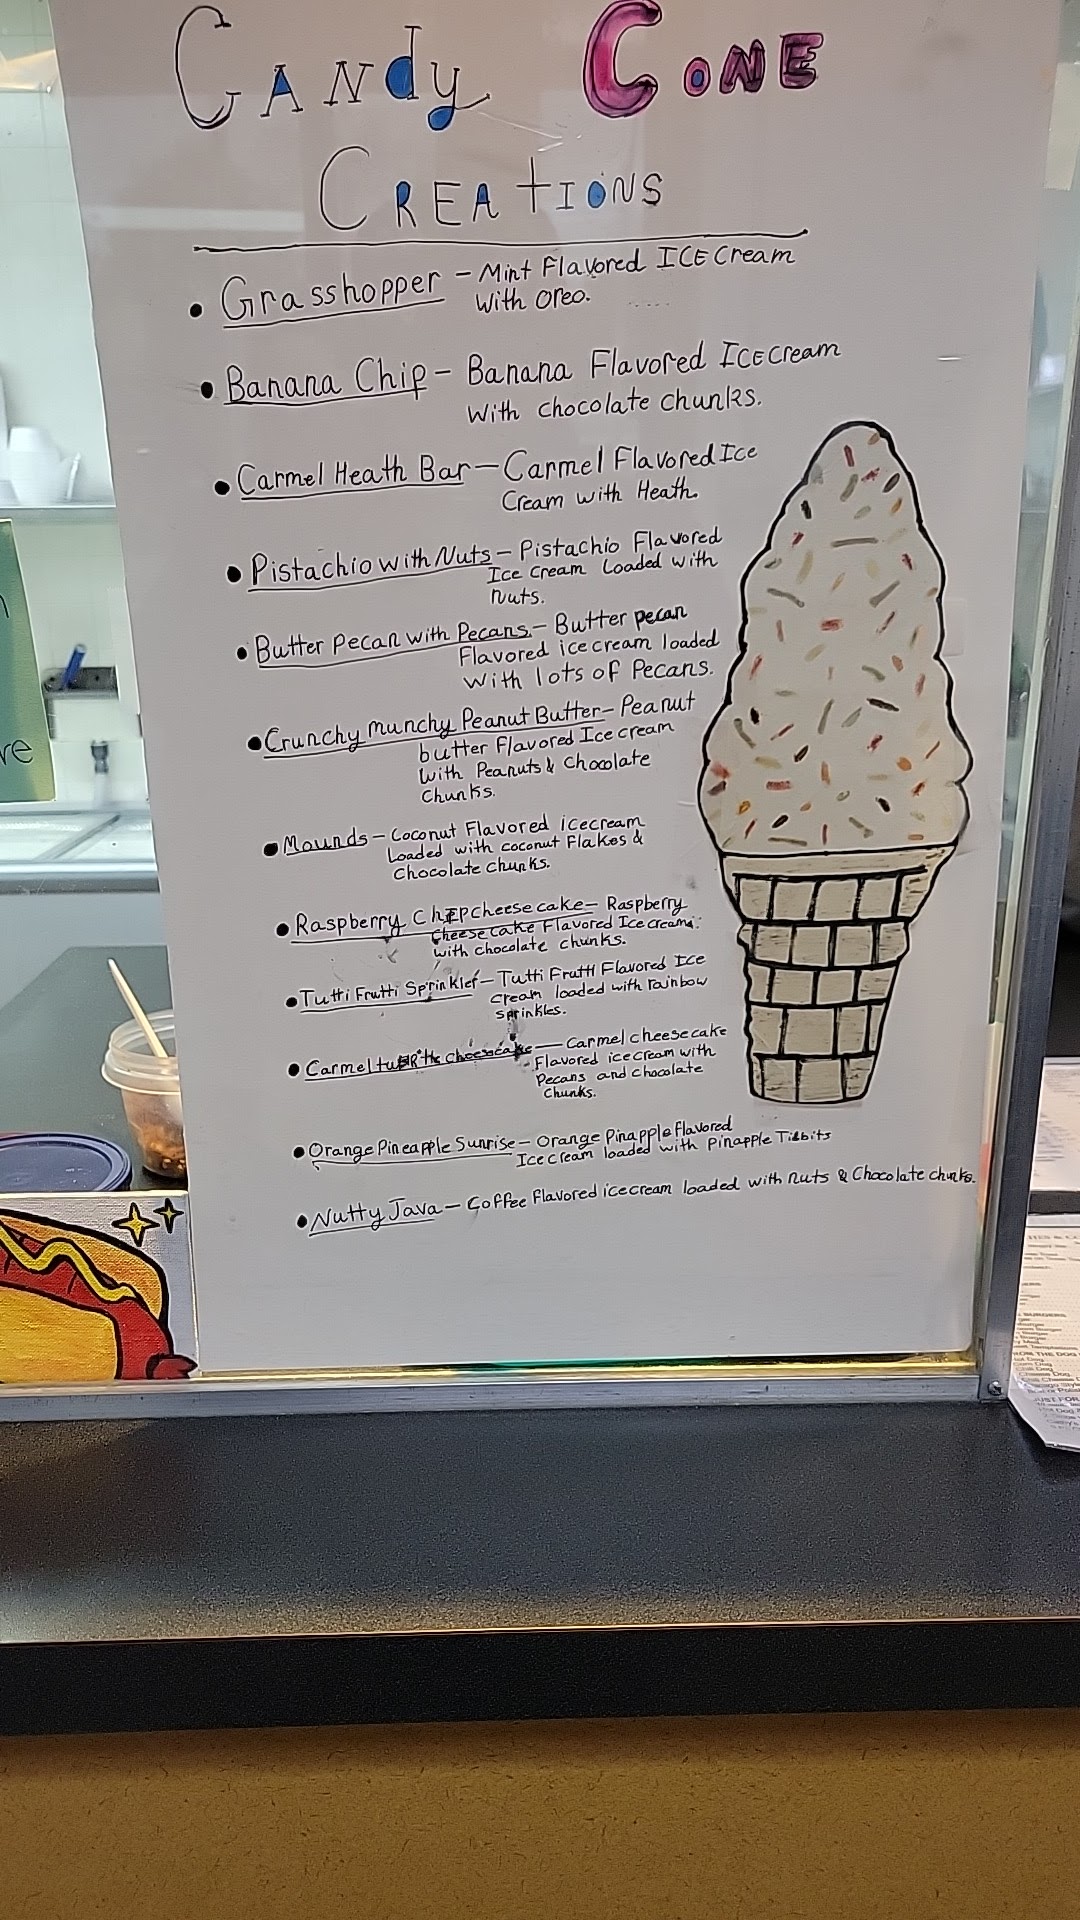 Candy Cone
Creations
• Grasshopper - Mint Flavored ICE Cream
With Oreo.
• Banana Chip - Banana Flavored ICE Cream
With Chocolate Chunks.
• Carmel Heath Bar - Carmel Flavored Ice
Cream with Heath.
• Pistachio with Nuts - Pistachio Flavored
Ice Cream Loaded with
nuts.
• Butter Pecan with Pecans. - Butter pecan
Flavored ice cream loaded
With lots of Pecans.
• Crunchy munchy Peanut Butter - Peanut
butter Flavored Ice cream
with Peanuts & Chocolate
Chunks.
• Mounds - Coconut Flavored icecream
Loaded with coconut Flakes &
Chocolate chunks.
• Raspberry Chip Cheesecake - Raspberry
Cheesecake Flavored Ice cream
with chocolate chunks.
• Tutti Frutti Sprinkler - Tutti Frutti Flavored Ice
Cream loaded with rainbow
sprinkles.
• Carmel Cheesecake - Carmel cheesecake
Flavored ice cream with
Pecans and Chocolate
Chunks.
• Orange Pineapple Sunrise - Orange Pinapple Flavored
Ice cream loaded with pinapple Tidbits
• Nutty Java - Coffee Flavored icecream loaded with nuts & Chocolate chunks.